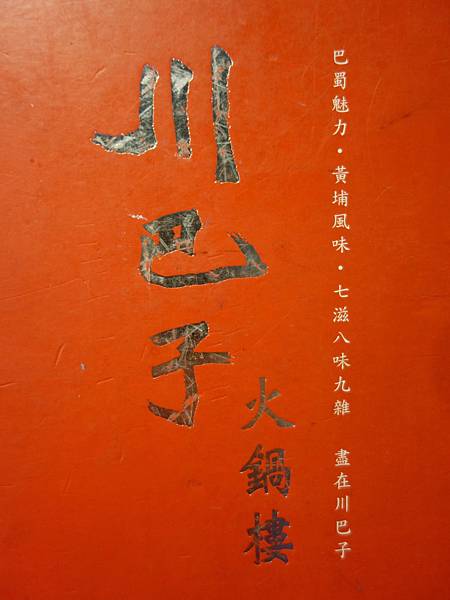 巴蜀魅力·黃埔風味·七滋八味九雜 盡在川巴子
川巴子
火鍋樓